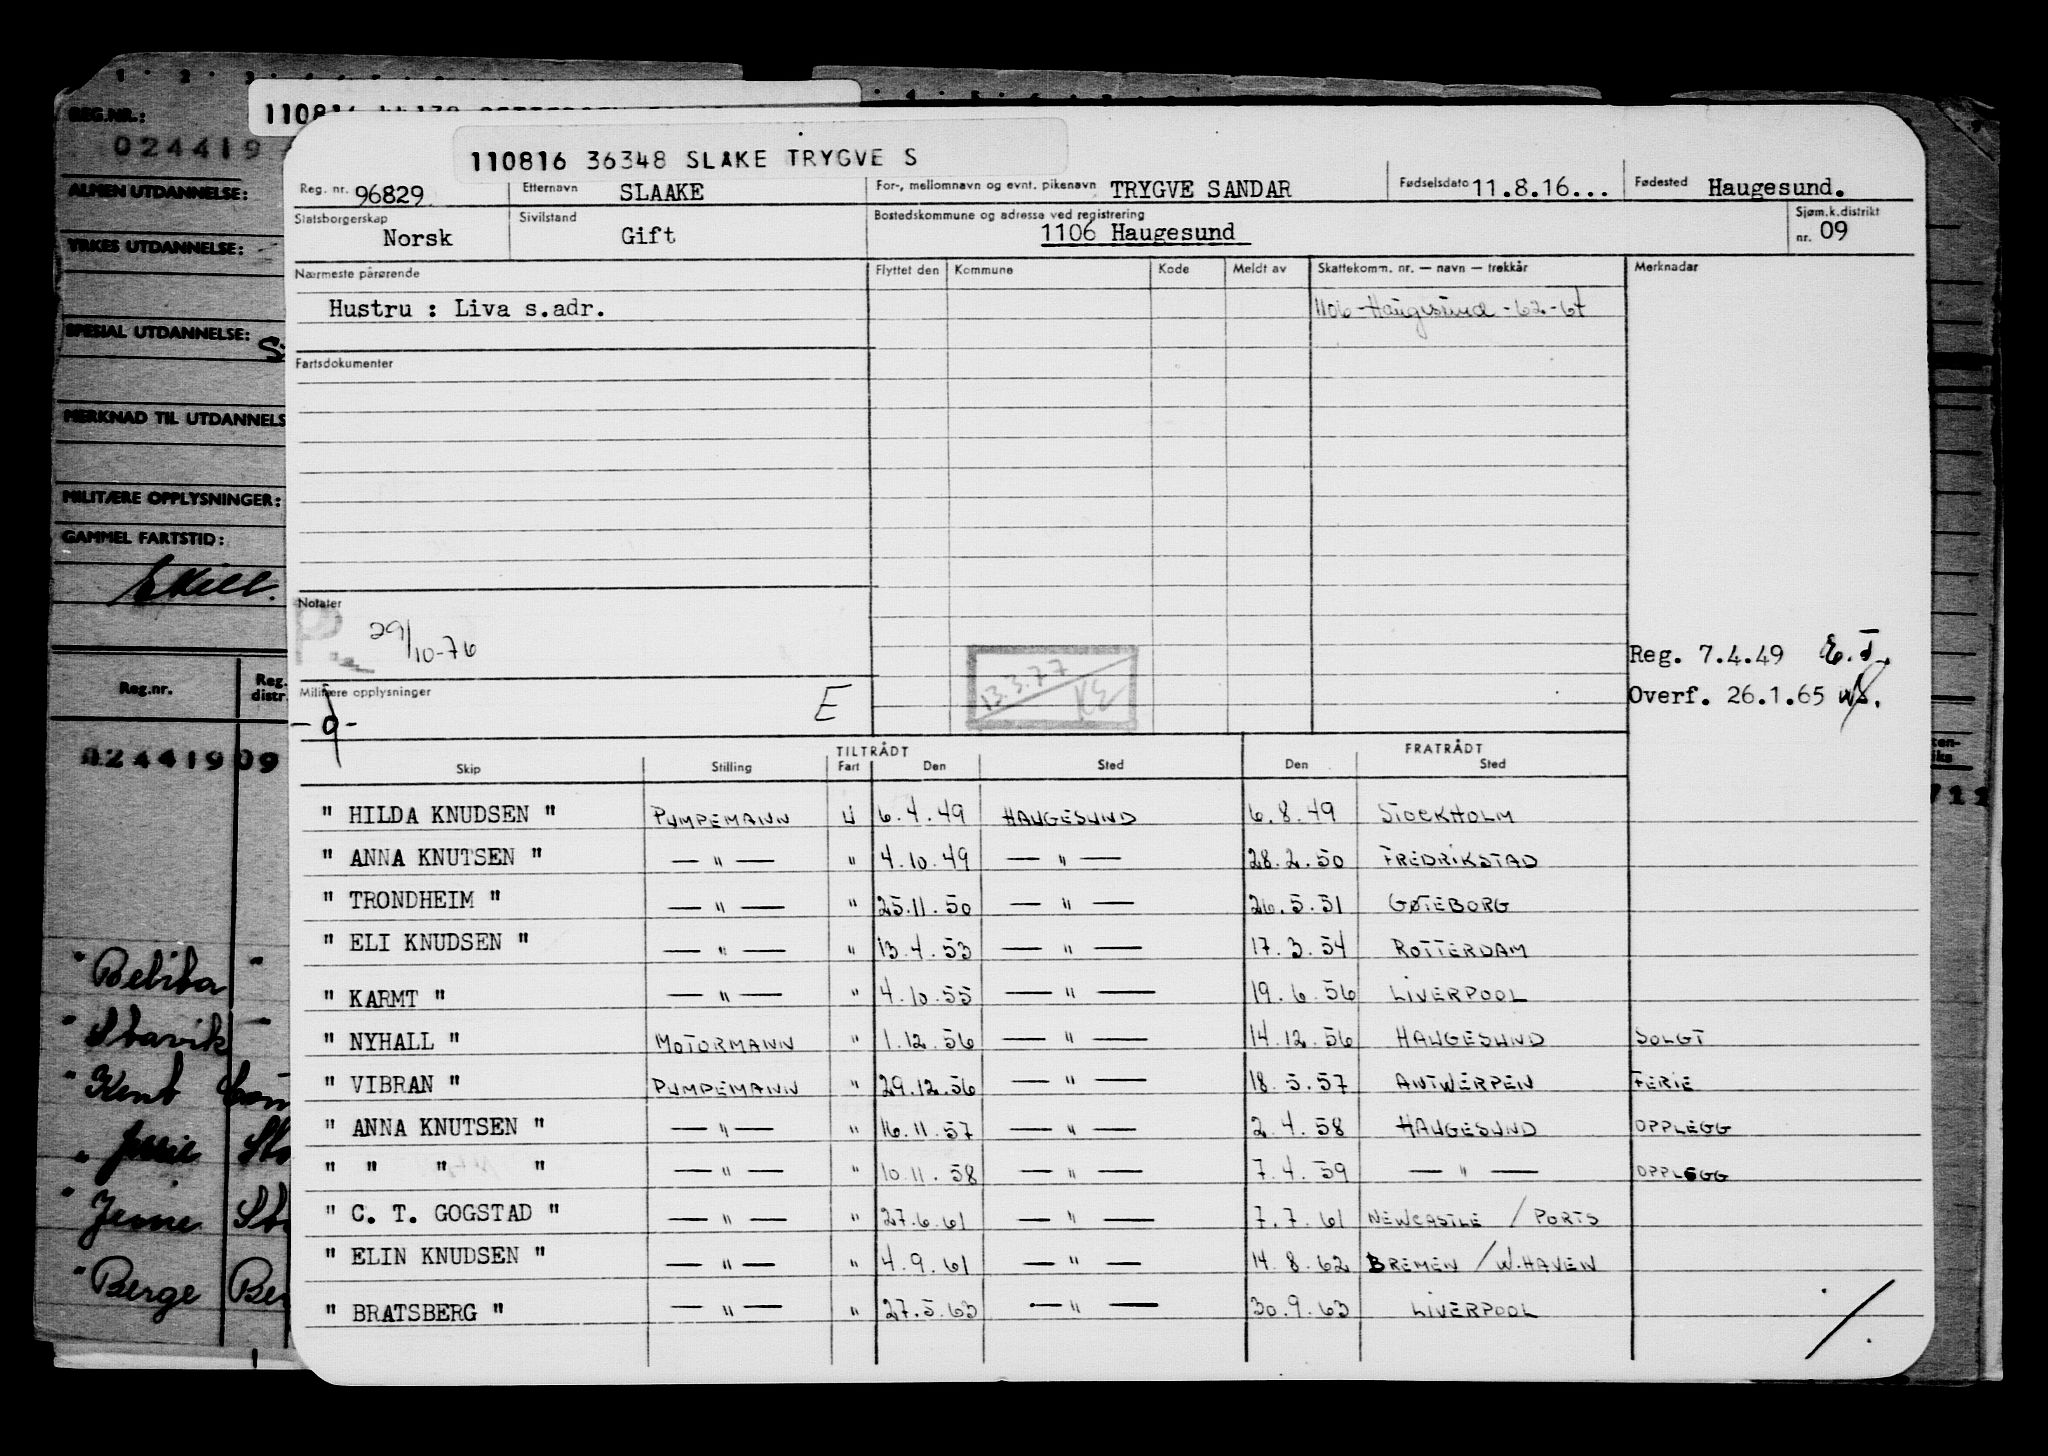 110816
REG.NR.:
024419
ALMEN UTDANNELSE:
YRKES UTDANNELSE:
SPESIAL UTDANNELSE:
MERKNAD TIL UTDANNELS
MILITÆRE OPPLYSNINGER:
GAMMEL FARTSTID:
Reg.nr. Reg. distr.
02441909
" Stavik
" Kent
" Jessie
" Berge Ber
110816 36348 SLAKE TRYGVE S
Reg. nr. 96829 Etternavn SLAAKE For-, mellomnavn og evnt. pikenavn TRYGVE SANDAR Fødselsdato 11.8.16... Fødested Haugesund.
Statsborgerskap Norsk Sivilstand Gift Bostedskommune og adresse ved registrering 1106 Haugesund Sjøm.k.distrikt nr. 09
Nærmeste pårørende Flyttet den Kommune Kode Meldt av Skattekomm. nr. — navn — trekkår Merknader
Hustru : Liva s.adr. 1106-Haugesund-62-67
Fartsdokumenter
Notater
P.
29/10-76
Reg. 7.4.49 E.T.
13.3.77 KE
Militære opplysninger E
Overf. 26.1.65
- 9 -
TILTRÅDT FRATRÅDT
Skip Stilling Fart Den Sted Den Sted
" HILDA KNUDSEN " PUMPEMANN U 6.4.49 HAUGESUND 6.8.49 STOCKHOLM
" ANNA KNUTSEN " — " — " 4.10.49 — " — 28.2.50 FREDRIKSTAD
" TRONDHEIM " — " — " 25.11.50 — " — 26.5.51 GØTEBORG
" ELI KNUDSEN " — " — " 13.4.53 — " — 17.3.54 ROTTERDAM
" KARMT " — " — " 4.10.55 — " — 19.6.56 LIVERPOOL
" NYHALL " MOTORMANN " 1.12.56 — " — 14.12.56 HAUGESUND SOLGT
" VIBRAN " PUMPEMANN " 29.12.56 — " — 18.5.57 ANTWERPEN FERIE
" ANNA KNUTSEN " — " — " 16.11.57 — " — 2.4.58 HAUGESUND OPPLEGG
" " " " — " — " 10.11.58 — " — 7.4.59 — " — OPPLEGG
" C. T. GOGSTAD " — " — " 27.6.61 — " — 7.7.61 NEWCASTLE / PORTS
" ELIN KNUDSEN " — " — " 4.9.61 — " — 14.8.62 BREMEN / W.HAVEN
" BRATSBERG " — " — " 27.5.63 — " — 30.9.63 LIVERPOOL